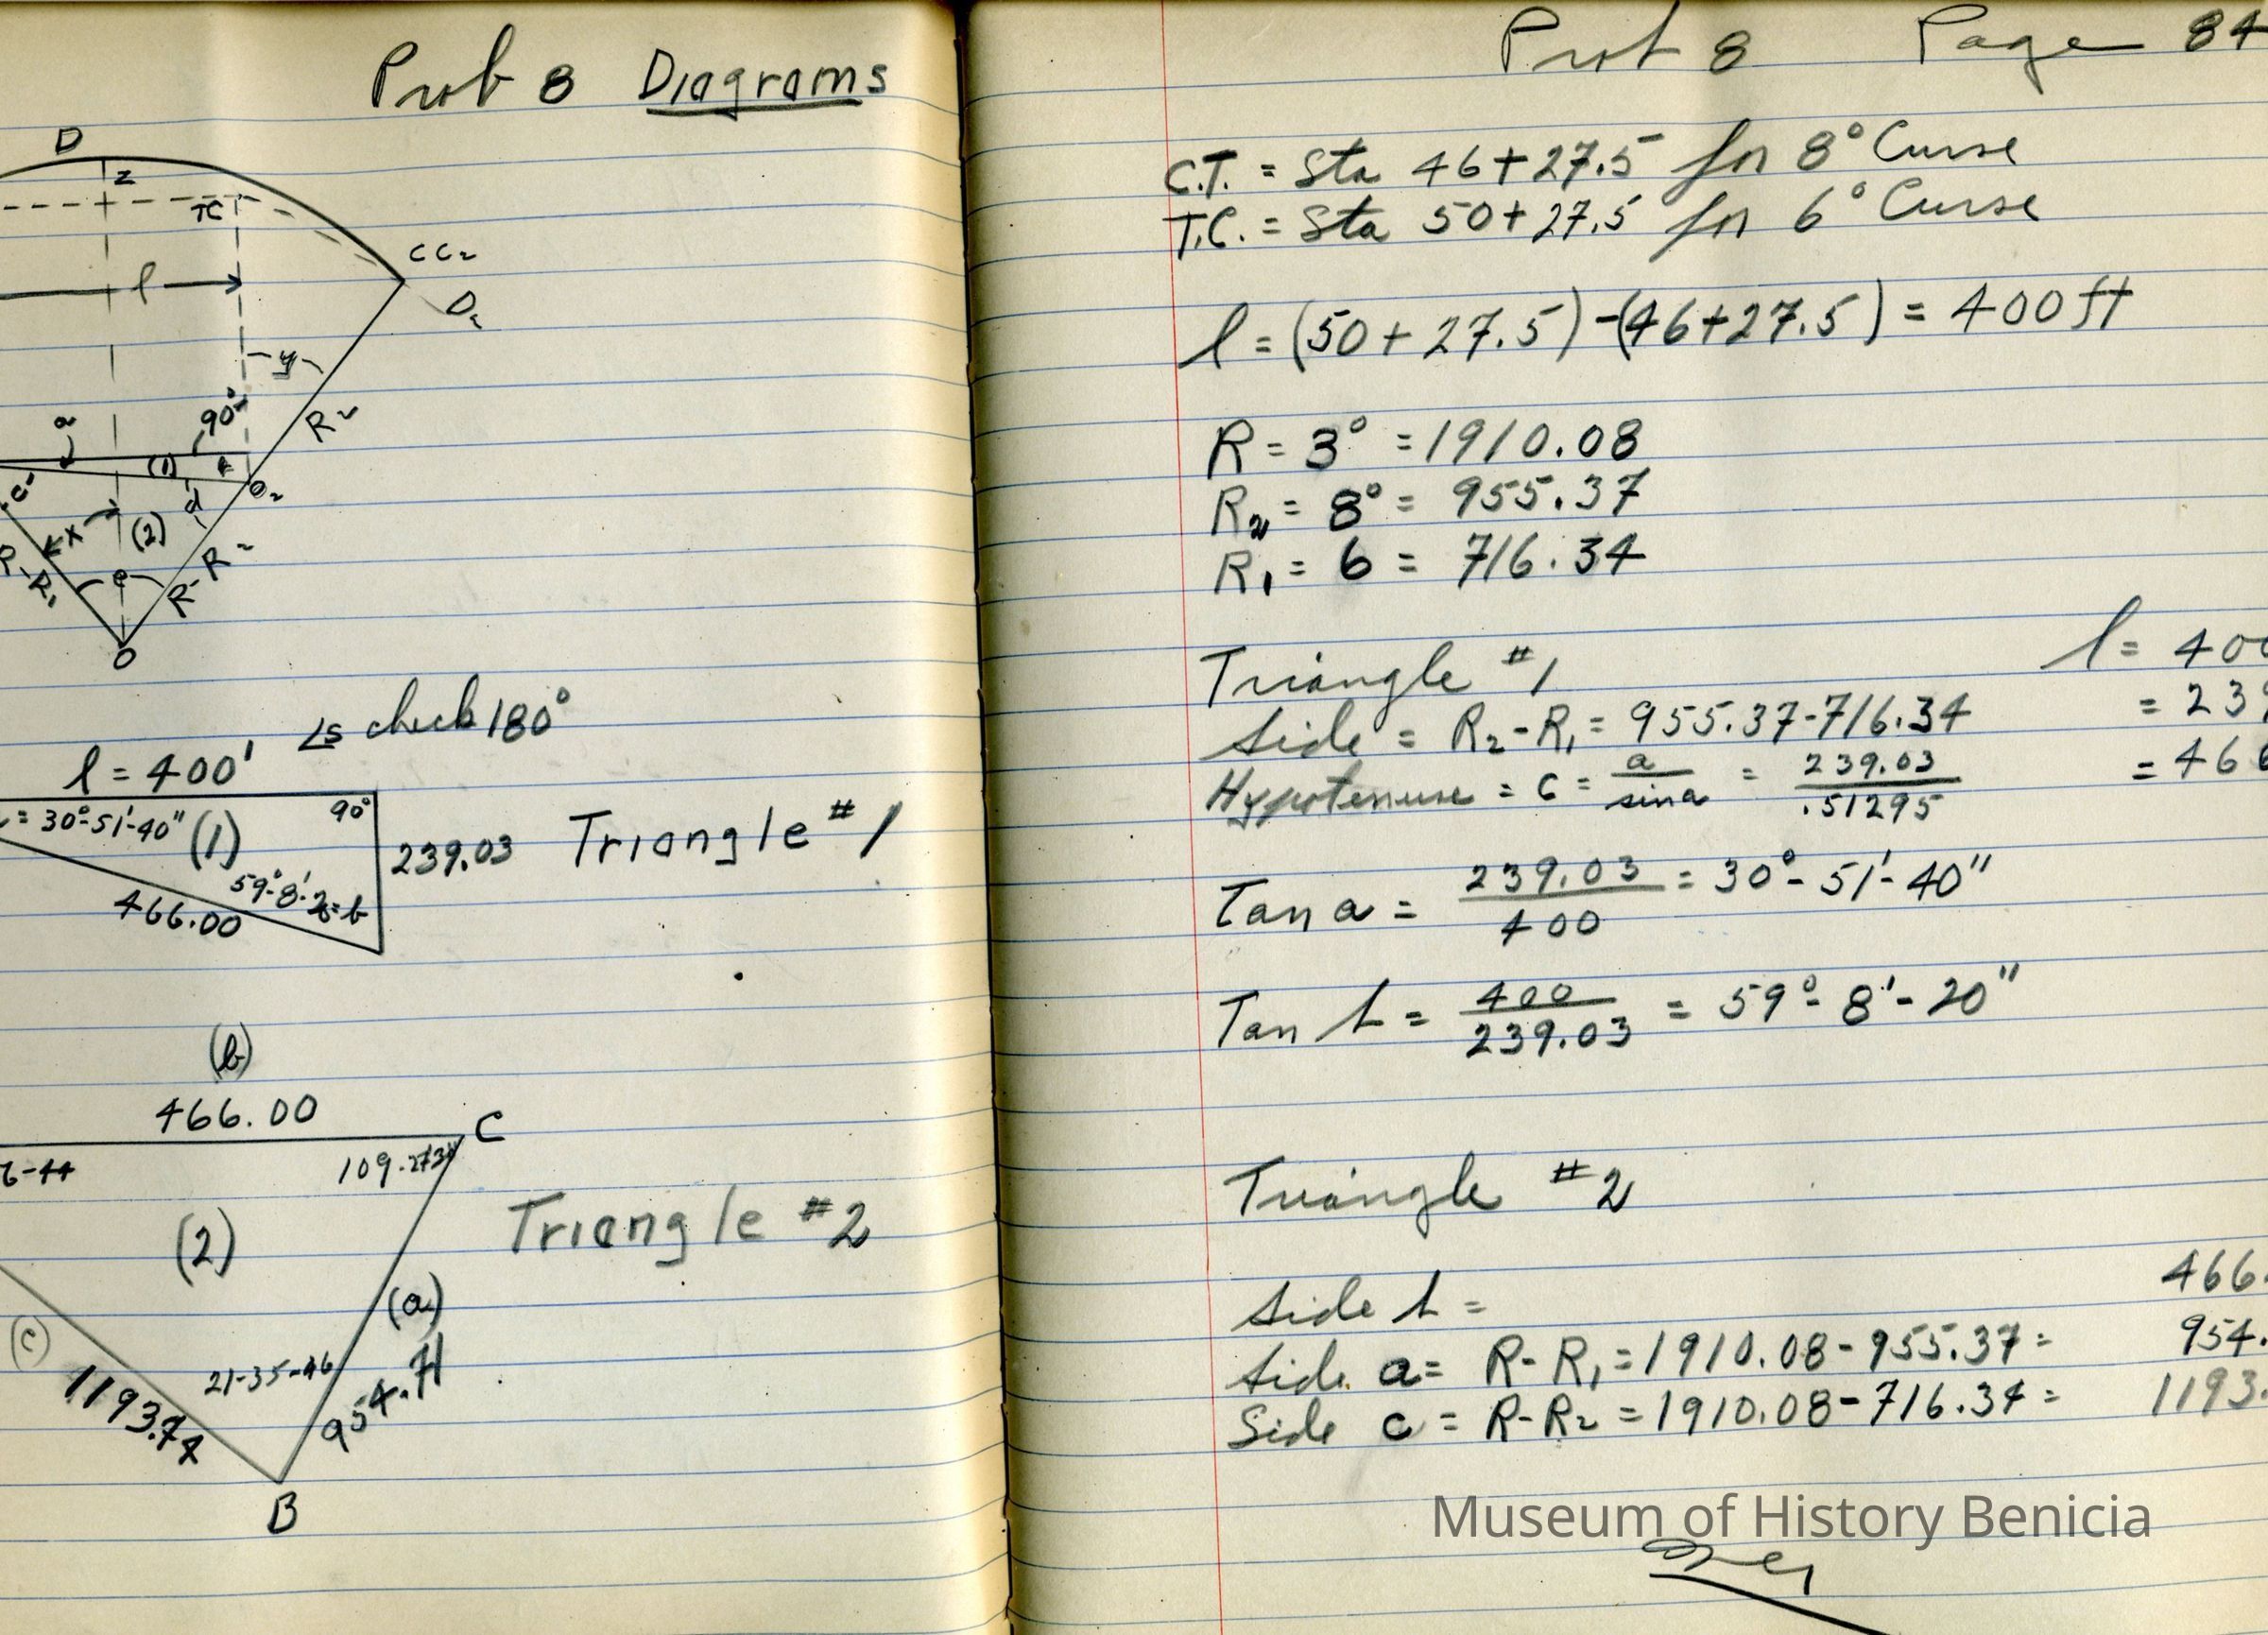 Prob 8 Diagrams
D
z
TC
CC2
D2
l
y
R2
90°
a
(1)
d
O2
x
(2)
R2
R-
e
R-R1
O
∠s check 180°
l = 400'
= 30°-51'-40"
(1)
90°
239.03
Triangle #1
59°-8'-20=b
466.00
(b)
466.00
C
6-44
109-27-30
(2)
Triangle #2
(a)
(c)
1193.74
21-35-46
954.71
B
Prob 8 Page 84
C.T. = Sta 46+27.5 for 8° Curse
T.C. = Sta 50+27.5 for 6° Curse
l = (50+27.5)-(46+27.5) = 400 ft
R = 3° = 1910.08
R2 = 8° = 955.37
R1 = 6 = 716.34
Triangle #1
l = 400
Side = R2-R1 = 955.37-716.34
= 239
Hypotenuse = C = a/sin a = 239.03/.51295
= 466
Tan a = 239.03/400 = 30°-51'-40"
Tan b = 400/239.03 = 59°-8'-20"
Triangle #2
Side b =
466.
Side a = R-R1 = 1910.08-955.37 =
954.
Side c = R-R2 = 1910.08-716.34 =
1193.
Museum of History Benicia